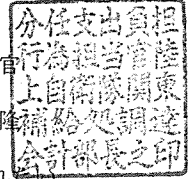 官
分任支出負担
行為担当官陸
上自衛隊関東
補給処調達
会計部長之印